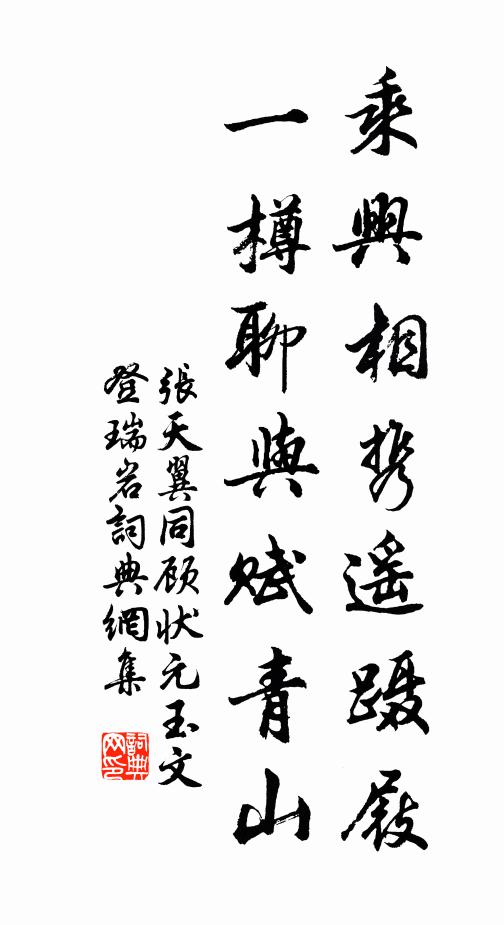 乘興相携遥蹑屐
一樽聊與赋青山
張天翼同顾状元玉文
登瑞岩詞典網集
詞典网印